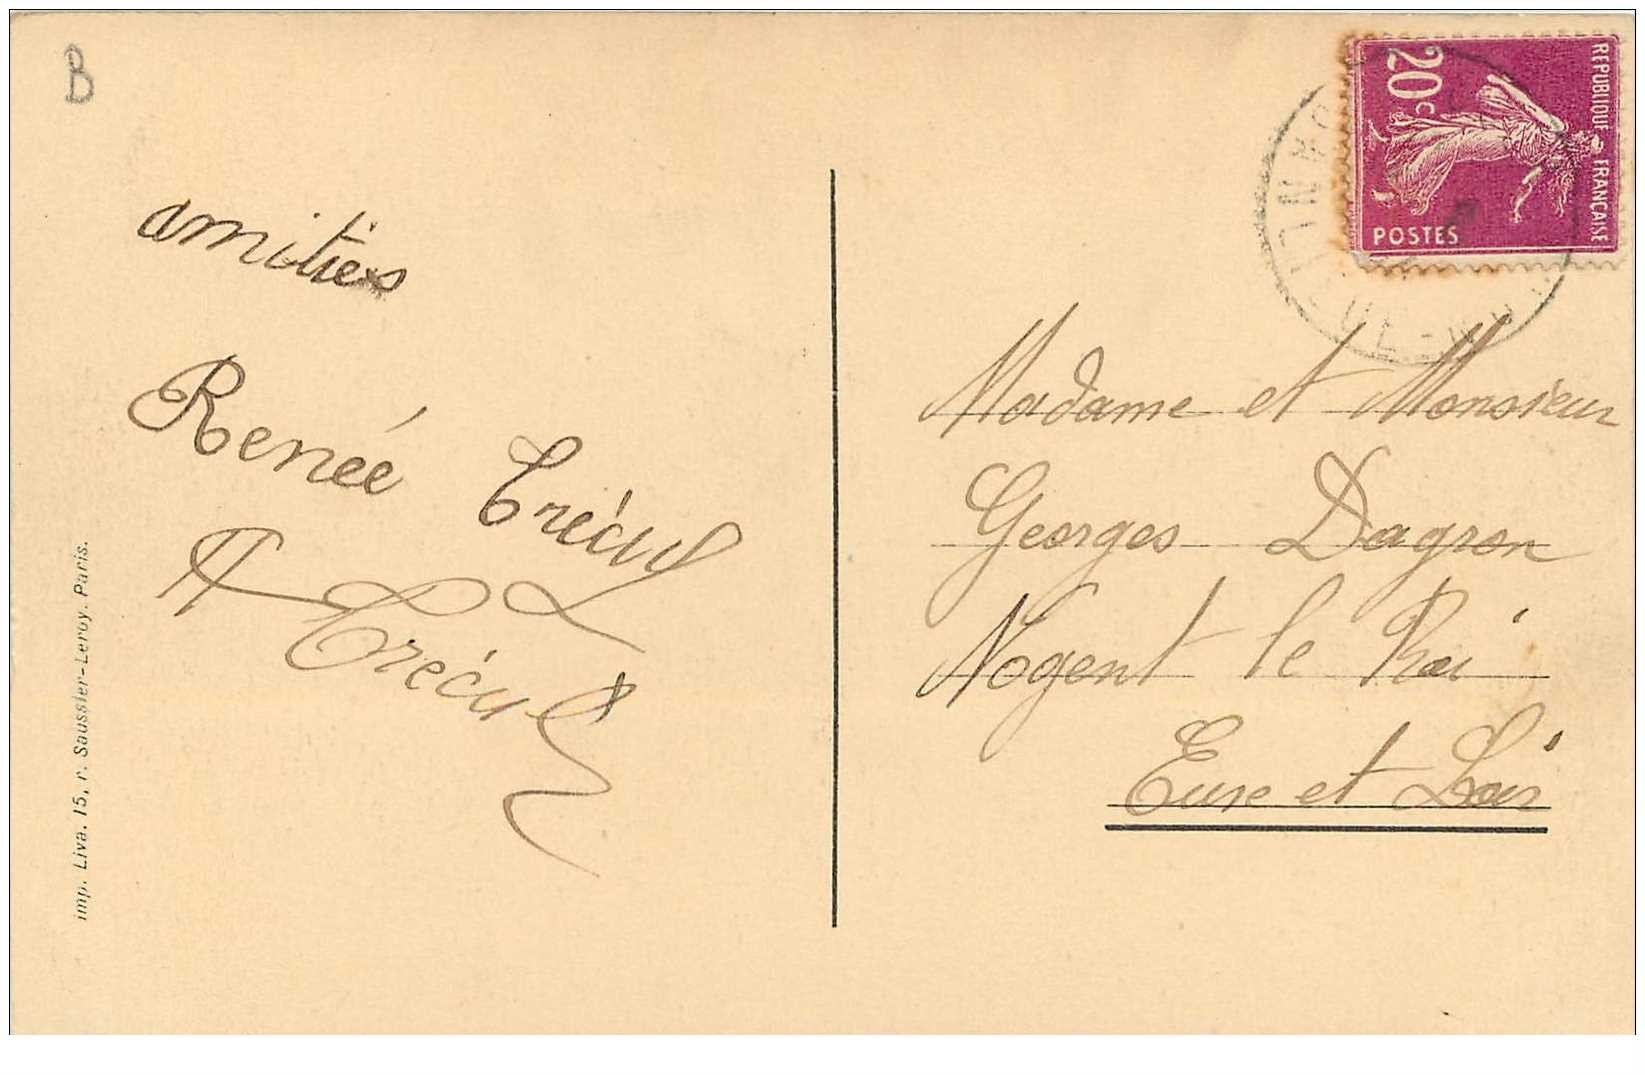 B
amitiés
Renée Trécul
Trécul
imp. Liva. 15, r. Saussier-Leroy. Paris.
REPUBLIQUE FRANÇAISE
20c
POSTES
Madame et Monsieur
Georges Dagron
Nogent le Roi
Eure et Loir